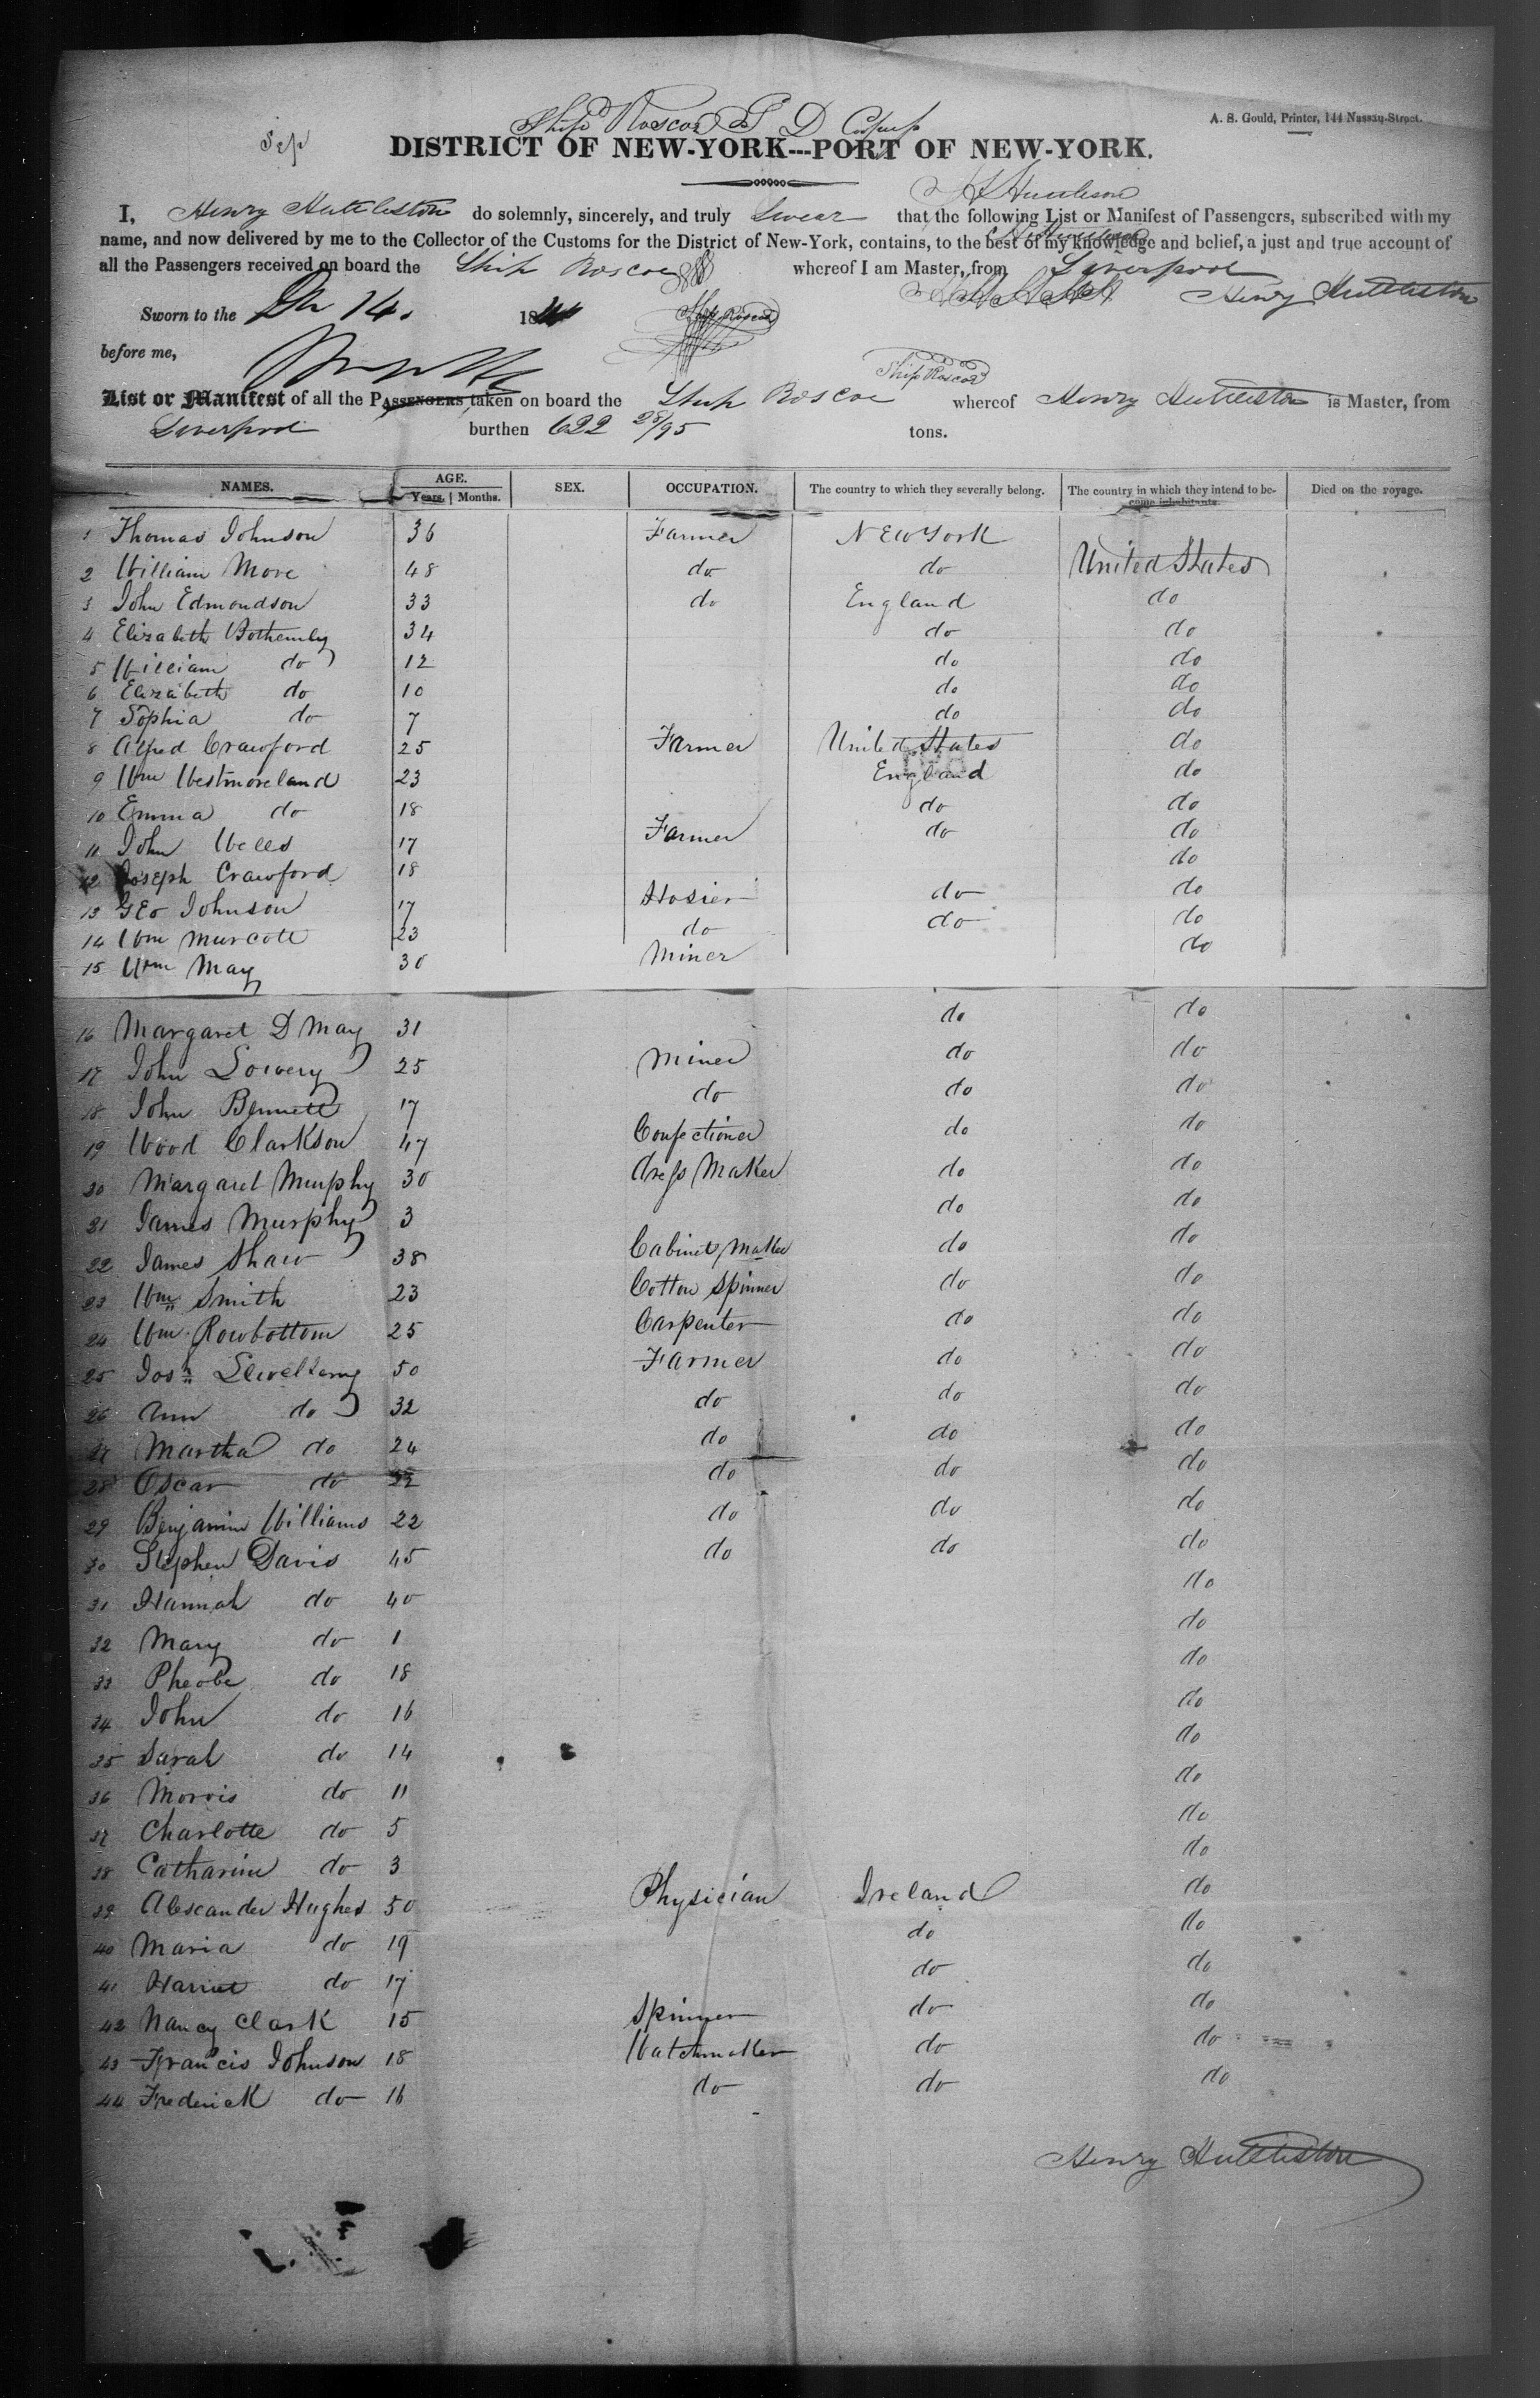 Ship Roscoe
A. S. Gould, Printer, 144 Nassau-Street.
DISTRICT OF NEW-YORK---PORT OF NEW-YORK.
I, Henry Huttleston do solemnly, sincerely, and truly Swear that the following List or Manifest of Passengers, subscribed with my
name, and now delivered by me to the Collector of the Customs for the District of New-York, contains, to the best of my knowledge and belief, a just and true account of
all the Passengers received on board the Ship Roscoe whereof I am Master, from Liverpool
Sworn to the 14. 18 Ship Roscoe Henry Huttleston
before me,
Ship Roscoe
List or Manifest of all the PASSENGERS taken on board the Ship Roscoe whereof Henry Huttleston is Master, from
Liverpool burthen 622 28/95 tons.
NAMES. AGE. SEX. OCCUPATION. The country to which they severally belong. The country in which they intend to be-
Years. Months. come inhabitants. Died on the voyage.
1 Thomas Johnson 36 Farmer New York
2 William More 48 do do United States
3 John Edmondson 33 do England do
4 Elizabeth Bothemly 34 do do
5 William do 12 do do
6 Elizabeth do 10 do do
7 Sophia do 7 do do
8 Alfred Crawford 25 Farmer United States do
9 Wm Westmoreland 23 England do
10 Emma do 18 do do
11 John Wells 17 Farmer do do
12 Joseph Crawford 18 do
13 Geo Johnson 17 Hosier do do
14 Wm Murcott 23 do do do
15 Wm May 30 Miner do
16 Margaret D May 31 do do
17 John Lowery 25 Miner do do
18 John Bennett 17 do do do
19 Wood Clarkson 47 Confectioner do do
20 Margaret Murphy 30 dress Maker do do
21 James Murphy 3 do do
22 James Shaw 38 Cabinet Maker do do
23 Wm Smith 23 Cotton Spinner do do
24 Wm Rowbottom 25 Carpenter do do
25 Josh 50 Farmer do do
26 Ann do 32 do do do
27 Martha do 24 do do do
28 Oscar do 22 do do do
29 Benjamin Williams 22 do do do
30 Stephen Davis 45 do do do
31 Hannah do 40 do
32 Mary do 1 do
33 Pheobe do 18 do
34 John do 16 do
35 Sarah do 14 do
36 Morris do 11 do
37 Charlotte do 5 do
38 Catharine do 3 do
39 Alexander Hughes 50 Physician Ireland do
40 Maria do 19 do do
41 Harriet do 17 do do
42 Nancy Clark 15 Spinner do do
43 Francis Johnson 18 Watchmaker do do
44 Frederick do 16 do do do
Henry Huttleston